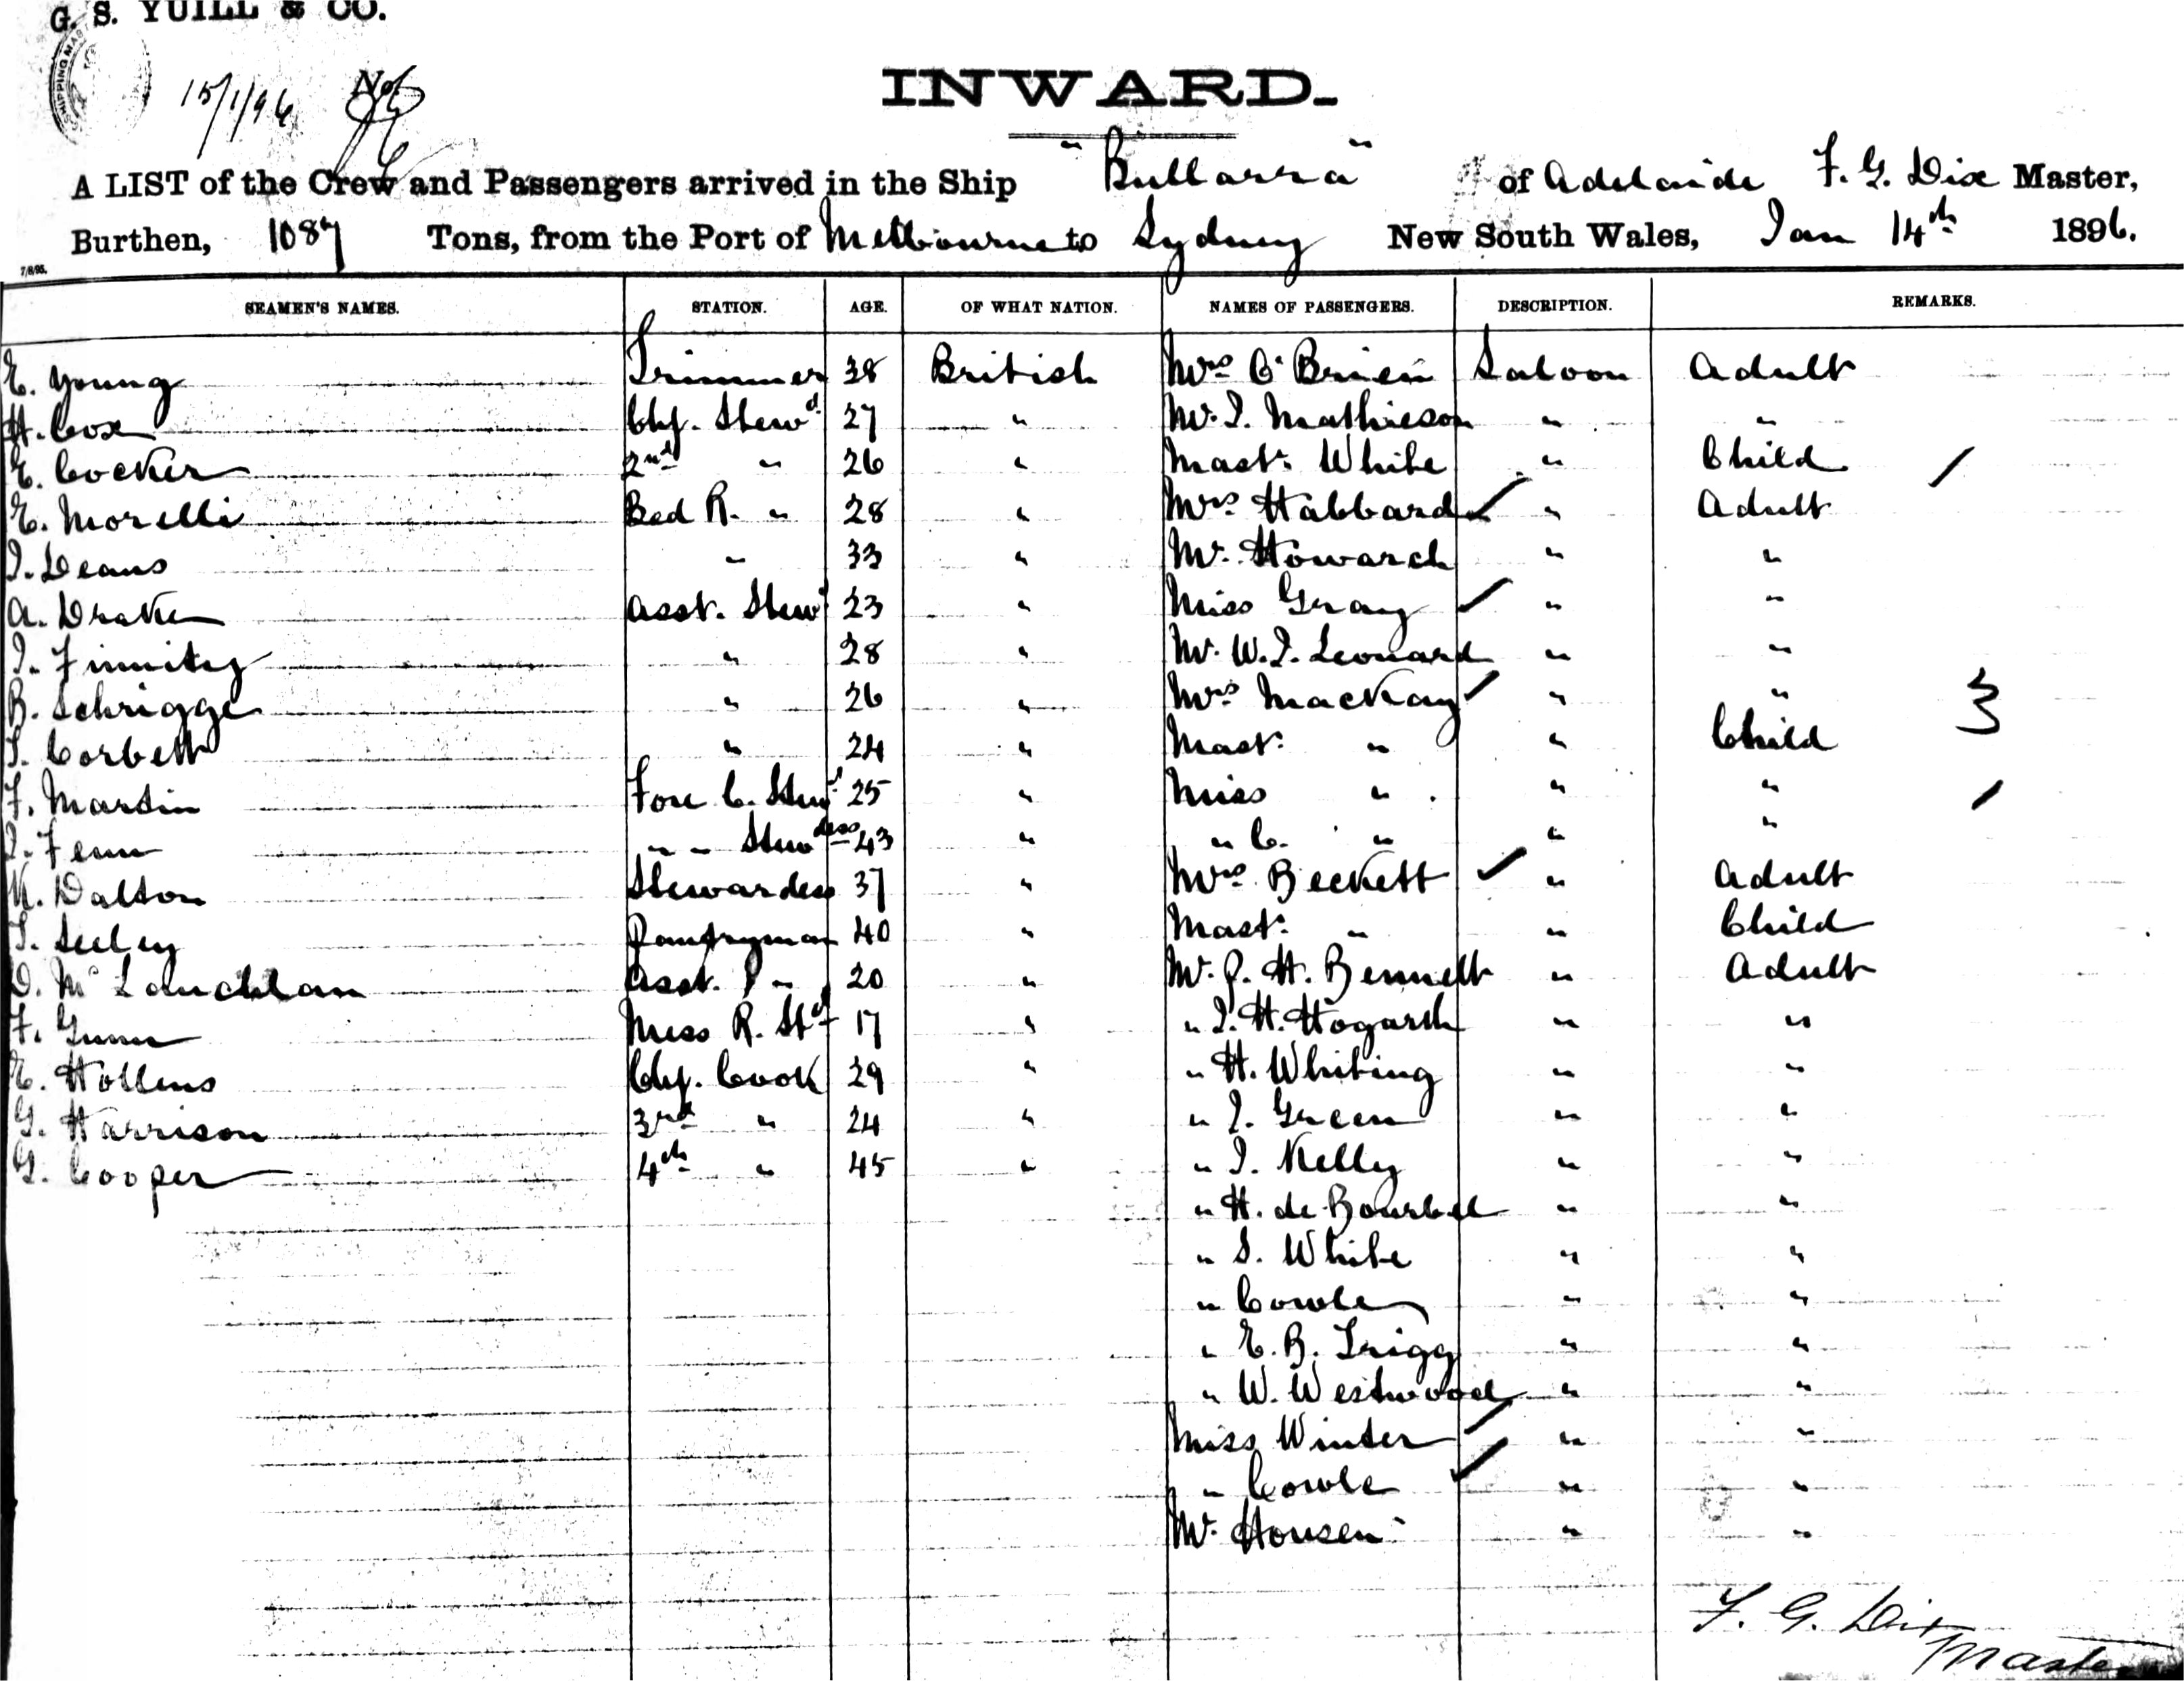 G. S. YUILL & CO.
SHIPPING MAS
15/1/96
INWARD.
A LIST of the Crew and Passengers arrived in the Ship "Bullarra" of Adelaide F. G. Dix Master,
Burthen, 1087 Tons, from the Port of Melbourne to Sydney New South Wales, Jan 14th 1896.
7/8/95.
SEAMEN'S NAMES. STATION. AGE. OF WHAT NATION. NAMES OF PASSENGERS. DESCRIPTION. REMARKS.
E. Young Trimmer 38 British Mrs O'Brien Saloon Adult
H. Cox Chf. Stewd 27 " Mr. J. Mathieson " "
E. Cocker 2nd " 26 " Mast. White " Child /
E. Morelli Bed R. " 28 " Mrs Habbard ✓ " Adult
J. Deans " 33 " Mr. Howard " "
A. Drake Asst. Stewd 23 " Miss Gray ✓ " "
J. Finnity " 28 " Mr. W. J. Leonard " "
B. Schrigge " 26 " Mrs MacKay ✓ " " 3
Corbett " 24 " Mast. " " Child
F. Martin Fore C. Stewd 25 " Miss " " " /
Fenn " " Stewdess 43 " " C. " " "
K. Dalton Stewardess 37 " Mrs Beckett ✓ " Adult
Seeley Pantryman 40 " Mast. " " Child
D. McLauchlan Asst. P " 20 " Mr. P. H. Bennett " Adult
F. Gunn Mess R. Std 17 " " J. H. Hogarth " "
E. Hollins Chf. Cook 29 " " H. Whiting " "
G. Harrison 3rd " 24 " " J. Green " "
G. Cooper 4th " 45 " " J. Kelly " "
" H. de Bourbel " "
" S. White " "
" Cowle " "
" E. B. Trigg " "
" W. Westwood " "
Miss Winter ✓ " "
" Cowle ✓ " "
Mr. Housen " "
F. G. Dix
Master